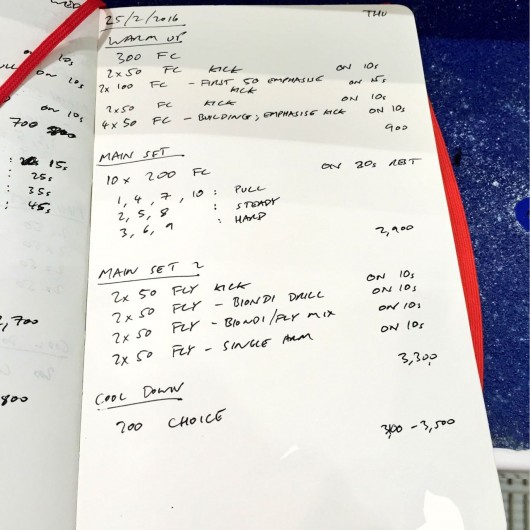 25/2/2016 THU
WARM UP
300 FC
2x50 FC KICK ON 10s
2x 100 FC - FIRST 50 EMPHASISE KICK ON 15s
2x50 FC KICK ON 10s
4x50 FC - BUILDING; EMPHASISE KICK ON 10s
900
MAIN SET
10 x 200 FC ON 20s REST
1, 4, 7, 10 : PULL
2, 5, 8 : STEADY
3, 6, 9 : HARD
2,900
MAIN SET 2
2x 50 FLY KICK ON 10s
2x 50 FLY - BIONDI DRILL ON 10s
2x 50 FLY - BIONDI/FLY MIX ON 10s
2x 50 FLY - SINGLE ARM ON 10s
3,300
COOL DOWN
200 CHOICE
3,500
on 10s
on 10s
on 10s
700
: 15s
: 25s
: 35s
: 45s
,700
800